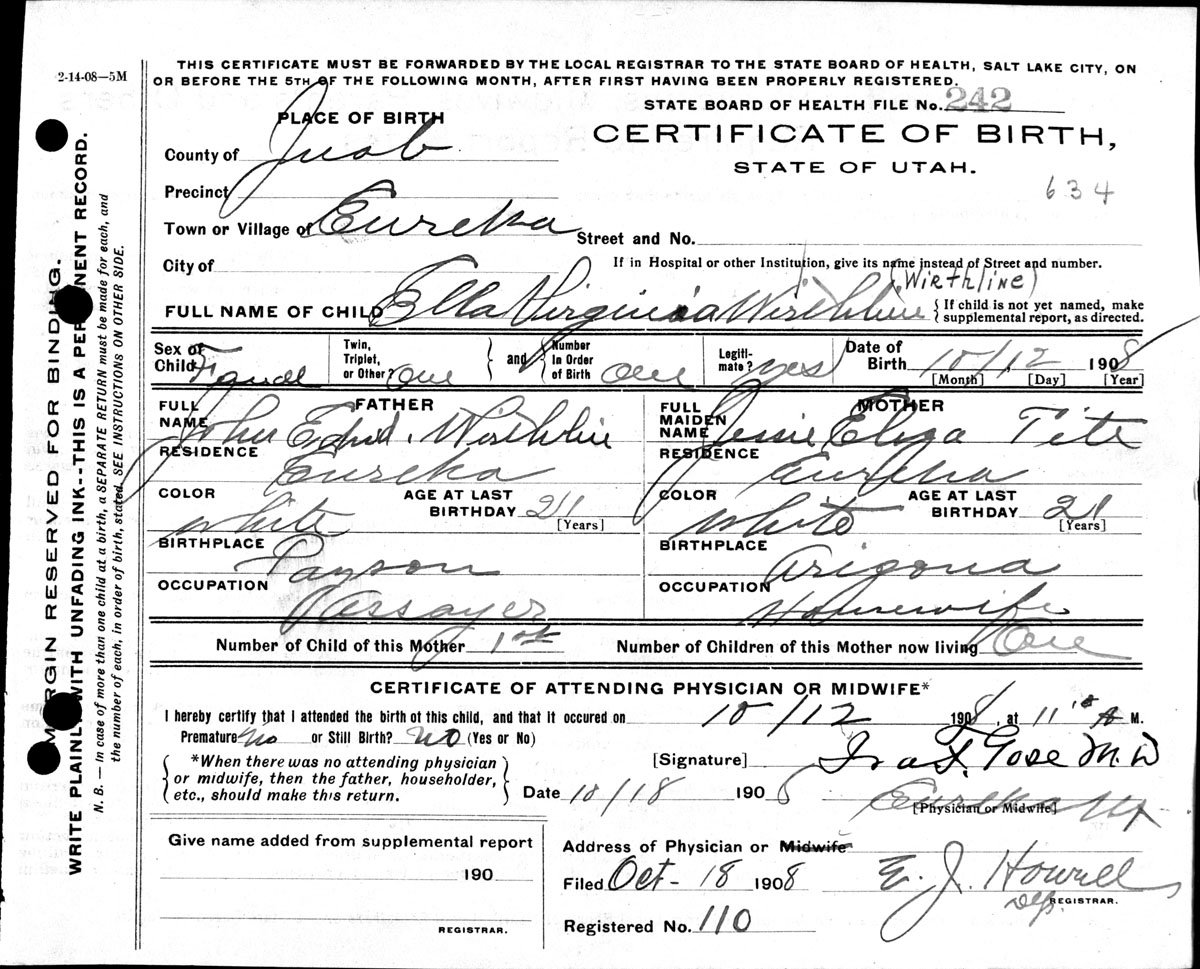 2-14-08—5M
THIS CERTIFICATE MUST BE FORWARDED BY THE LOCAL REGISTRAR TO THE STATE BOARD OF HEALTH, SALT LAKE CITY, ON
OR BEFORE THE 5TH OF THE FOLLOWING MONTH, AFTER FIRST HAVING BEEN PROPERLY REGISTERED.
STATE BOARD OF HEALTH FILE No. 242
PLACE OF BIRTH
CERTIFICATE OF BIRTH,
STATE OF UTAH.
634
County of Juab
Precinct
Town or Village of Eureka
Street and No.
City of
If in Hospital or other Institution, give its name instead of Street and number.
(Wirthline)
FULL NAME OF CHILD Ella Virginia Wirthline
{ If child is not yet named, make
supplemental report, as directed.
Sex of Child Female
Twin, Triplet, or Other? One
and
Number In Order of Birth One
Legitimate? yes
Date of Birth 10/12 1908
[Month] [Day] [Year]
FATHER
FULL NAME John Edwd. Wirthlin
RESIDENCE Eureka
COLOR White
AGE AT LAST BIRTHDAY 21 [Years]
BIRTHPLACE Payson
OCCUPATION Assayer
MOTHER
FULL MAIDEN NAME Jessie Eliza Tite
RESIDENCE Eureka
COLOR White
AGE AT LAST BIRTHDAY 21 [Years]
BIRTHPLACE Arizona
OCCUPATION Housewife
Number of Child of this Mother 1st
Number of Children of this Mother now living One
CERTIFICATE OF ATTENDING PHYSICIAN OR MIDWIFE*
I hereby certify that I attended the birth of this child, and that it occured on 10/12 1908, at 11 A M.
Premature no or Still Birth? NO (Yes or No)
{ *When there was no attending physician
or midwife, then the father, householder,
etc., should make this return. }
[Signature] M.D
Date 10/18 1908
Eureka
[Physician or Midwife]
Give name added from supplemental report
190
REGISTRAR.
Address of Physician or Midwife
Filed Oct - 18 1908
E. J. Howell
Dep. REGISTRAR.
Registered No. 110
MARGIN RESERVED FOR BINDING.
WRITE PLAINLY WITH UNFADING INK--THIS IS A PERMANENT RECORD.
N. B.—In case of more than one child at a birth, a SEPARATE RETURN must be made for each, and
the number of each, in order of birth, stated. SEE INSTRUCTIONS ON OTHER SIDE.